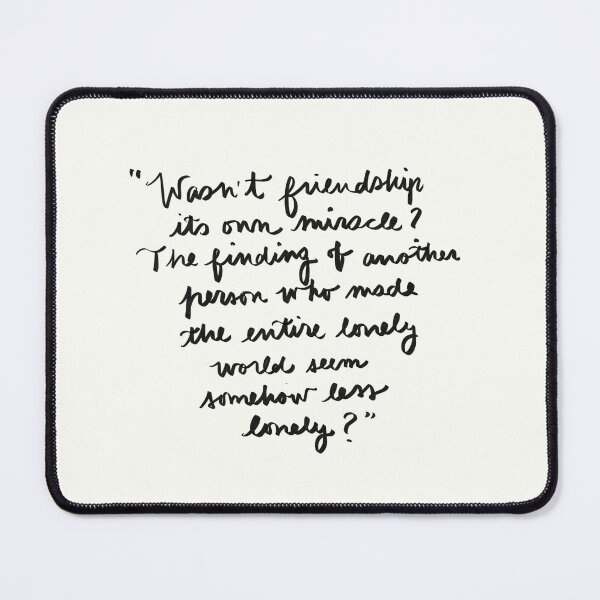 "Wasn't friendship
its own miracle?
The finding of another
person who made
the entire lonely
world seem
somehow less
lonely?"